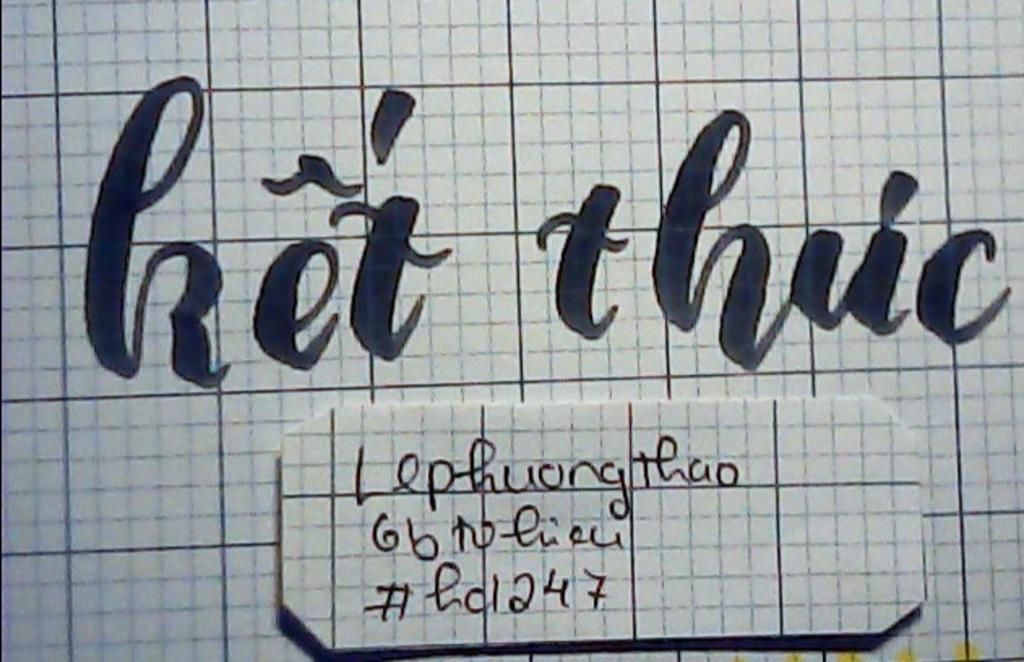 kết thúc
Lephuongthao
Gb tố hiệu
#hd1247